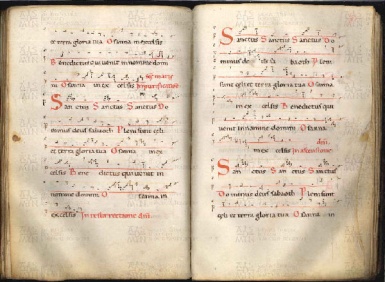 et terra gloria tua O sanna in excelsis
Benedictus qui uenit in nomine domi
ni O sanna in excelsis In purificatione
Sanctus Sanctus Sanctus Do
minus deus sabaoth Pleni sunt celi
et terra gloria tua O sanna in ex
celsis Bene dictus qui uenit in
nomine domini O sanna in
excelsis In resurrectione dni
Sanctus Sanctus Sanctus Do
minus de us sa baoth Pleni
sunt celi et terra gloria tua O sanna
in ex celsis Benedictus qui
uenit in nomine domini O sanna
in ex celsis In ascensione
dni
Sanctus Sanctus Sanctus
Do minus deus sabaoth Pleni sunt
celi et terra gloria tua O sanna in